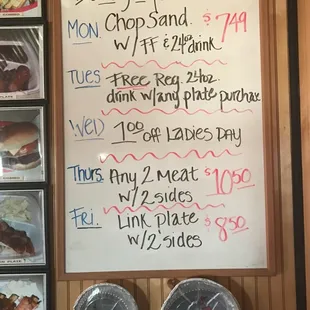 MON. Chop Sand. $7.49
w/ FF & 24oz drink
TUES FREE Reg. 24oz.
drink w/any plate purchase
WED 1.00 off LADIES DAY
Thurs. Any 2 Meat $10.50
w/2 sides
Fri. Link Plate $8.50
w/2 sides